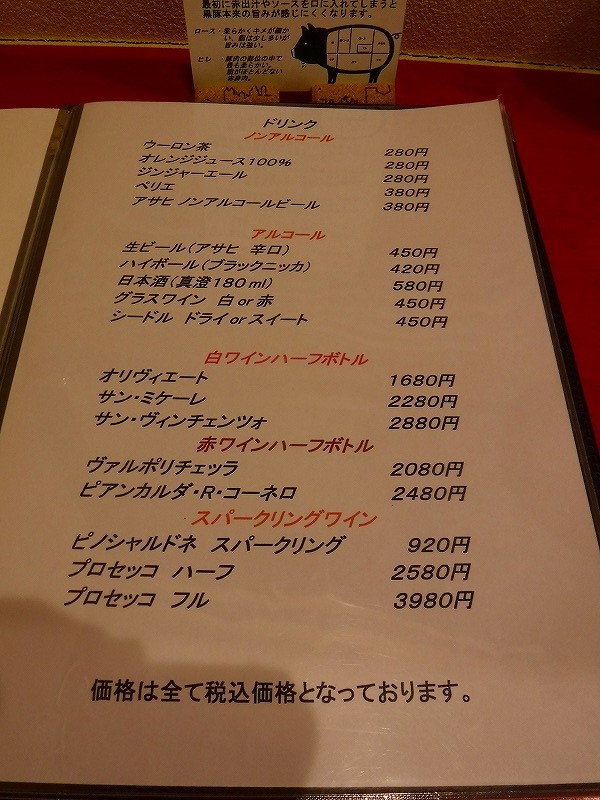 最初に赤出汁やソースを口に入れてしまうと
黒豚本来の旨みが感じにくくなります。
ロース・柔らかくキメが細か
い、脂は少し多いが
旨みは強い。
ヒレ ・豚肉の部位の中で
最も柔らかい。
脂がほとんどない
赤身肉。
ドリンク
ノンアルコール
ウーロン茶 280円
オレンジジュース100% 280円
ジンジャーエール 280円
ペリエ 380円
アサヒ ノンアルコールビール 380円
アルコール
生ビール(アサヒ 辛口) 450円
ハイボール(ブラックニッカ) 420円
日本酒(真澄180ml) 580円
グラスワイン 白or赤 450円
シードル ドライorスイート 450円
白ワインハーフボトル
オリヴィエート 1680円
サン・ミケーレ 2280円
サン・ヴィンチェンツォ 2880円
赤ワインハーフボトル
ヴァルポリチェッラ 2080円
ピアンカルダ・R・コーネロ 2480円
スパークリングワイン
ピノシャルドネ スパークリング 920円
プロセッコ ハーフ 2580円
プロセッコ フル 3980円
価格は全て税込価格となっております。